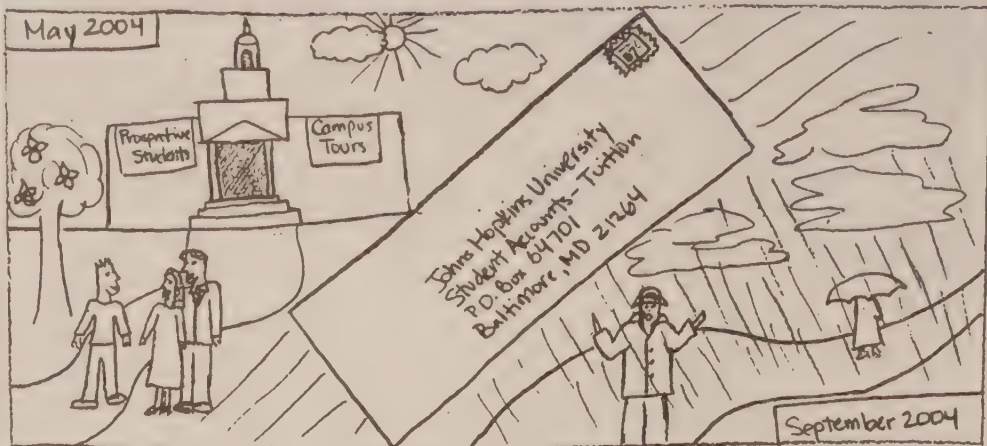 May 2004
Prospective
Students
Campus
Tours
Johns Hopkins University
Student Accounts - Tuition
P.O. Box 64701
Baltimore, MD 21264
September 2004